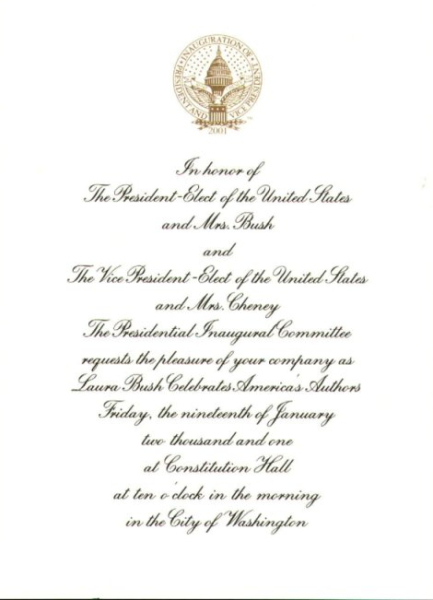 INAUGURATION OF
PRESIDENT AND
VICE PRESIDENT
2001
In honor of
The President-Elect of the United States
and Mrs. Bush
and
The Vice President-Elect of the United States
and Mrs. Cheney
The Presidential Inaugural Committee
requests the pleasure of your company as
Laura Bush Celebrates America's Authors
Friday, the nineteenth of January
two thousand and one
at Constitution Hall
at ten o'clock in the morning
in the City of Washington